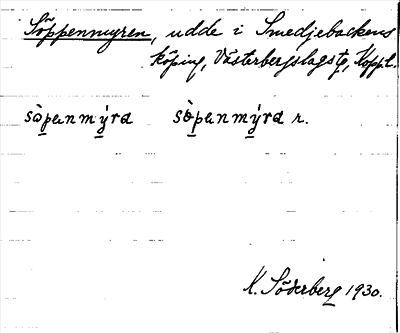 Söppenmyren, udde i Smedjebackens
köping, Västerbergslags tg, Koppl.
sòpanmýra sòpanmýra r.
K. Söderberg 1930.